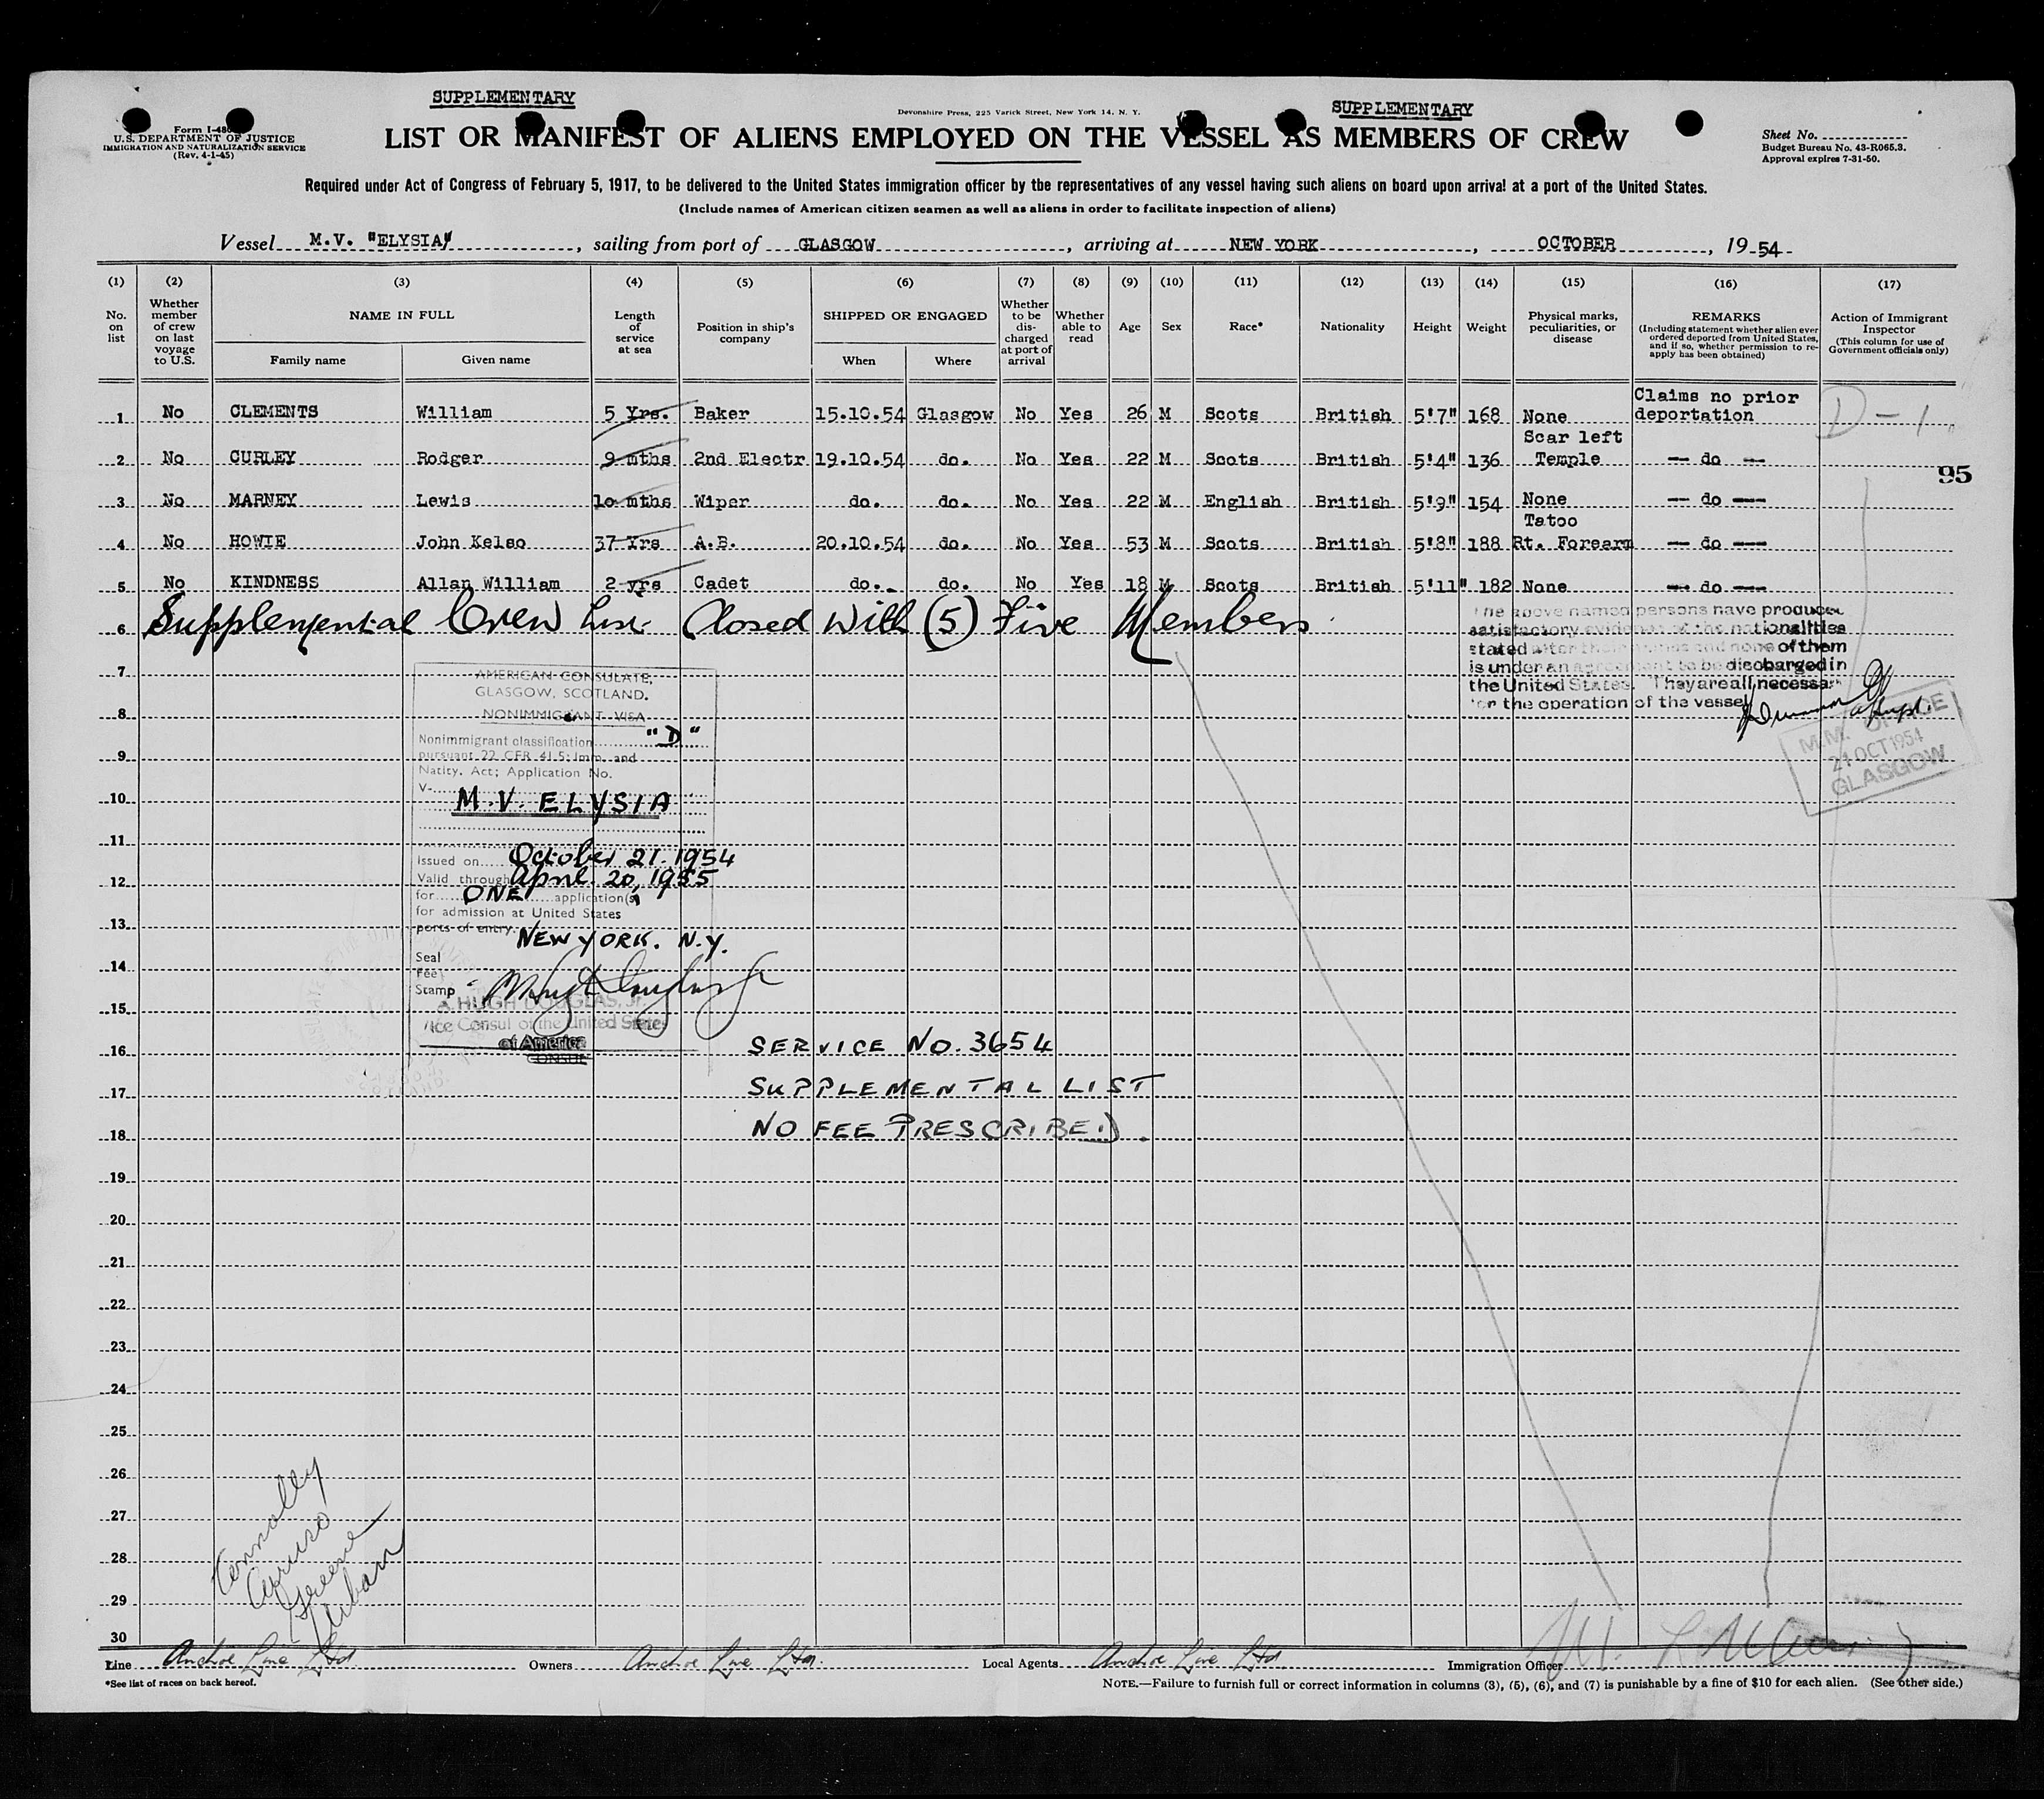 SUPPLEMENTARY
SUPPLEMENTARY
Devonshire Press, 225 Varick Street, New York 14, N. Y.
Form I-480
U. S. DEPARTMENT OF JUSTICE
IMMIGRATION AND NATURALIZATION SERVICE
(Rev. 4-1-45)
LIST OR MANIFEST OF ALIENS EMPLOYED ON THE VESSEL AS MEMBERS OF CREW
Sheet No.
Budget Bureau No. 43-R065.3.
Approval expires 7-31-50.
Required under Act of Congress of February 5, 1917, to be delivered to the United States immigration officer by the representatives of any vessel having such aliens on board upon arrival at a port of the United States.
(Include names of American citizen seamen as well as aliens in order to facilitate inspection of aliens)
Vessel M.V. "ELYSIA", sailing from port of GLASGOW, arriving at NEW YORK, OCTOBER, 19 54
(1) (2) (3) (4) (5) (6) (7) (8) (9) (10) (11) (12) (13) (14) (15) (16) (17)
No. on list
Whether member of crew on last voyage to U.S.
NAME IN FULL
Family name
Given name
Length of service at sea
Position in ship's company
SHIPPED OR ENGAGED
When
Where
Whether to be discharged at port of arrival
Whether able to read
Age
Sex
Race*
Nationality
Height
Weight
Physical marks, peculiarities, or disease
REMARKS
(Including statement whether alien ever ordered deported from United States, and if so, whether permission to reapply has been obtained)
Action of Immigrant Inspector
(This column for use of Government officials only)
1 No CLEMENTS William 5 Yrs. Baker 15.10.54 Glasgow No Yes 26 M Scots British 5'7" 168 None Claims no prior deportation D-1
2 No CURLEY Rodger 9 mths 2nd Electr 19.10.54 do. No Yes 22 M Scots British 5'4" 136 Scar left Temple — do —
95
3 No MARNEY Lewis 10 mths Wiper do. do. No Yes 22 M English British 5'9" 154 None — do —
4 No HOWIE John Kelso 37 Yrs A.B. 20.10.54 do. No Yes 53 M Scots British 5'8" 188 Tatoo Rt. Forearm — do —
5 No KINDNESS Allan William 2 yrs Cadet do. do. No Yes 18 M Scots British 5'11" 182 None — do —
6 Supplemental Crew List Closed With (5) Five Members
The above named persons have produced
satisfactory evidence of the nationalities
stated after their names and none of them
is under an agreement to be discharged in
the United States. They are all necessary
for the operation of the vessel
M.M. OFFICE
21 OCT 1954
GLASGOW
7
8
9
10
11
12
13
14
15
16
17
18
19
20
21
22
23
24
25
26
27
28
29
30
AMERICAN CONSULATE,
GLASGOW, SCOTLAND.
NONIMMIGRANT VISA
Nonimmigrant classification "D"
pursuant 22 CFR 41.5; Imm. and
Natity. Act; Application No.
V-
M.V. ELYSIA
Issued on October 21. 1954
Valid through April 20, 1955
for ONE application(s)
for admission at United States
ports of entry. NEW YORK. N.Y.
Seal
Fee
Stamp
A. HUGH DOUGLAS, Jr.
Vice Consul of the United States
of America
CONSUL
SERVICE NO. 3654
SUPPLEMENTAL LIST
NO FEE PRESCRIBED.
Connolly
Caruso
Greene
Urban
Line Anchor Line Ltd. Owners Anchor Line Ltd. Local Agents Anchor Line Ltd Immigration Officer
*See list of races on back hereof.
NOTE.—Failure to furnish full or correct information in columns (3), (5), (6), and (7) is punishable by a fine of $10 for each alien. (See other side.)